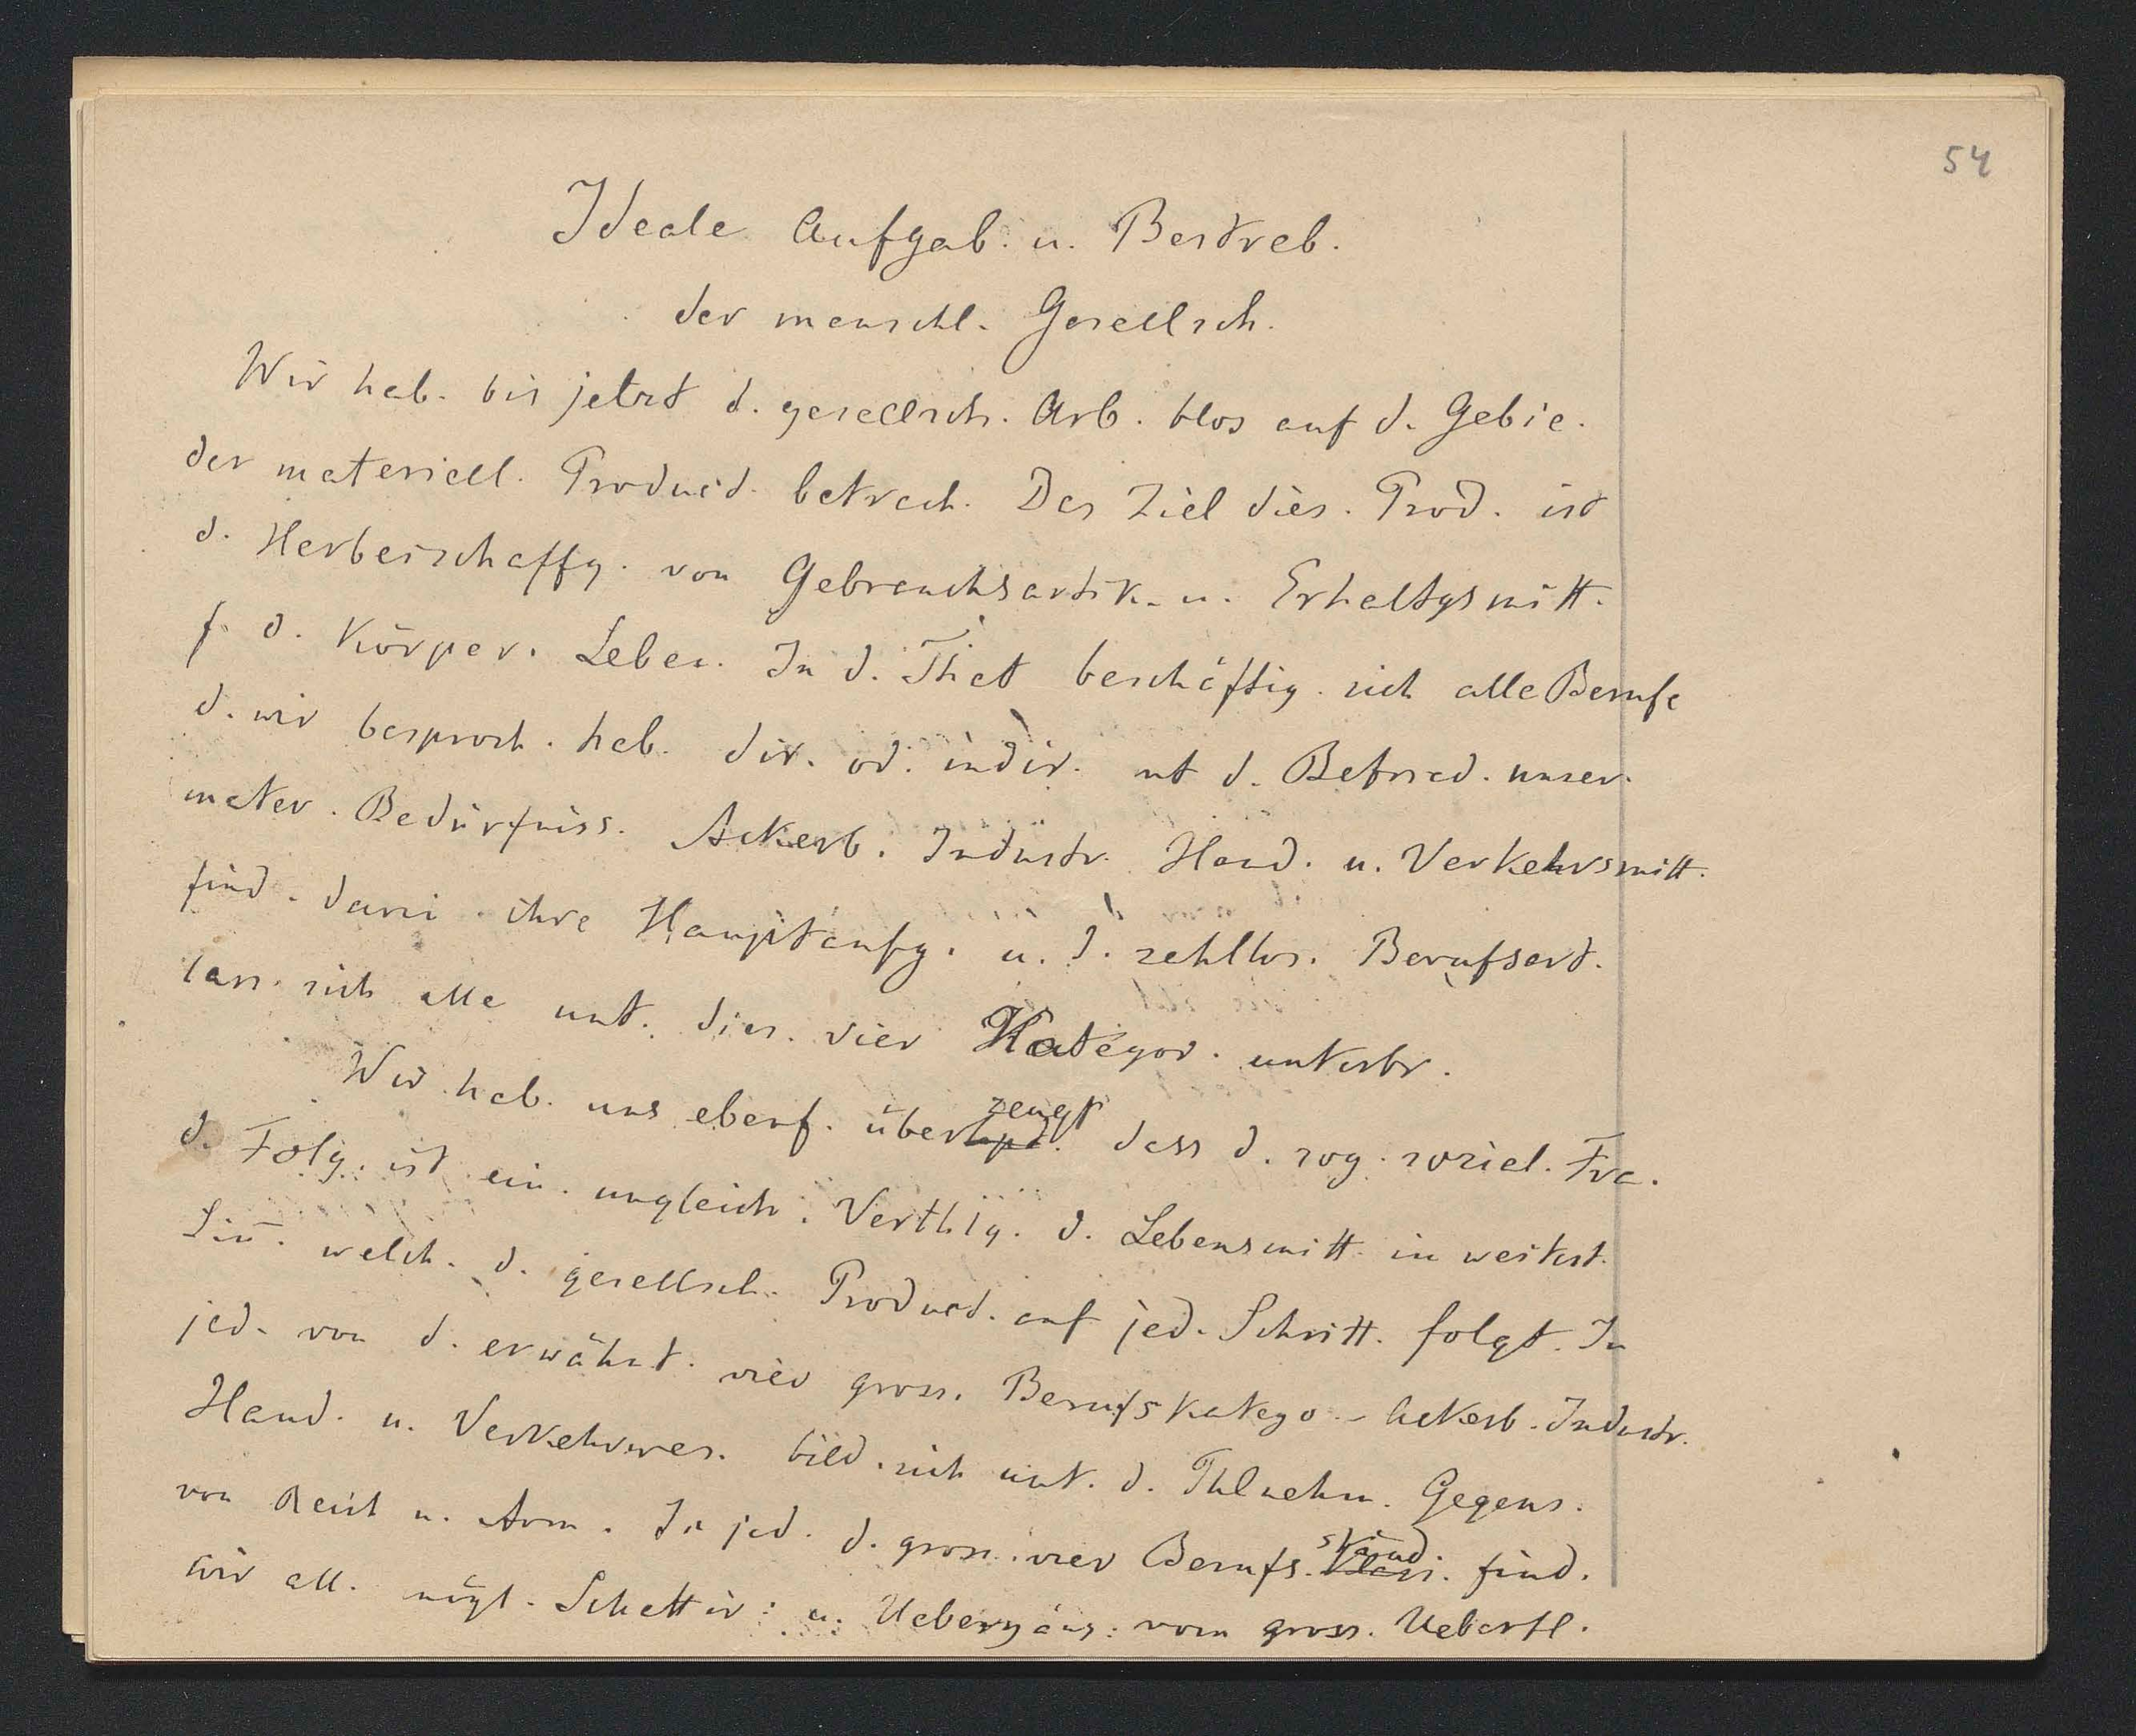 54
Ideale Aufgab. u. Bestreb.
der menschl. Gesellsch.
Wir hab. bis jetzt d. gesellsch. Arb. blos auf d. Gebie.
der materiell. Product. betrach. Das Ziel dies. Prod. ist
d. Herbeischaffg. von Gebrauchsartik. u. Erhaltgsmitt.
f. d. Körper. Leben. In d. That beschäftig. sich alle Berufe
d. wir besproch. hab. dir. od. indir. mt d. Befried. unser.
mater. Bedürfniss. Ackerb. Industr. Hand. u. Verkehrsmitt.
find. darin ihre Hauptaufg. u. d. zahllos. Berufsart.
lass. sich alle unt. dies. vier Kategor. unterbr.
Wir hab. uns ebenf. überzeugt dass d. sog. sozial. Fra.
d. Folg. ist ein. ungleich. Verthlg. d. Lebensmitt. in weitest.
Sin̄. welch. d. gesellsch. Product. auf jed. Schritt. folgt. In
jed. von d. erwähnt. vier gross. Berufskatego. - Ackerb. Industr.
Hand. u. Verkehrswes. bild. sich unt. d. Thlnehm. Gegens.
von Reich u. Arm. In jed. d. gross. vier Berufs. ständ. Klass. find.
wir all. mögl. Schattir. u. Uebergäng. vom gross. Ueberfl.